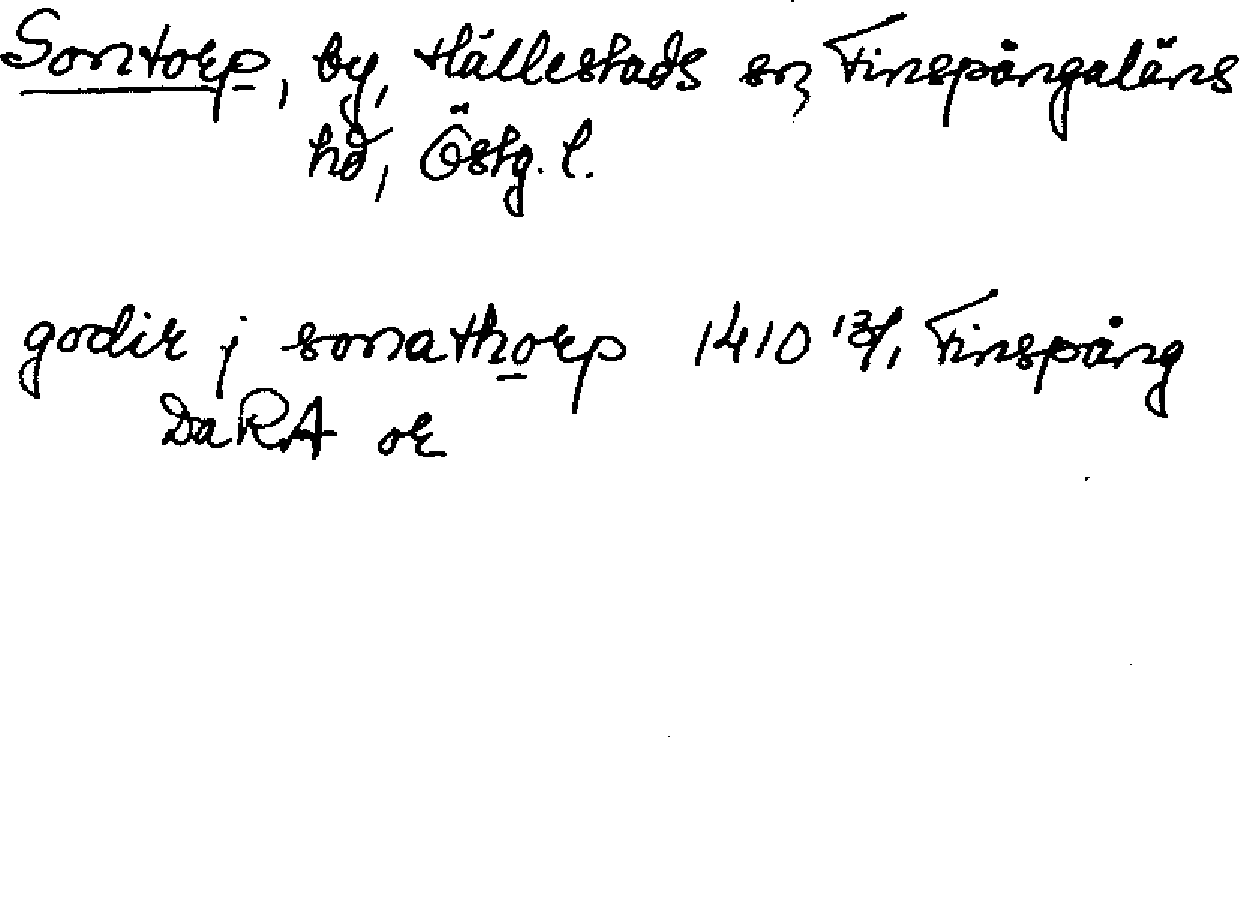 Sontorp, by, Hällestads sn, Finspångaläns
hd, Östg. l.
godir j sonathorp 1410 13/1 Finspång
DaRA or